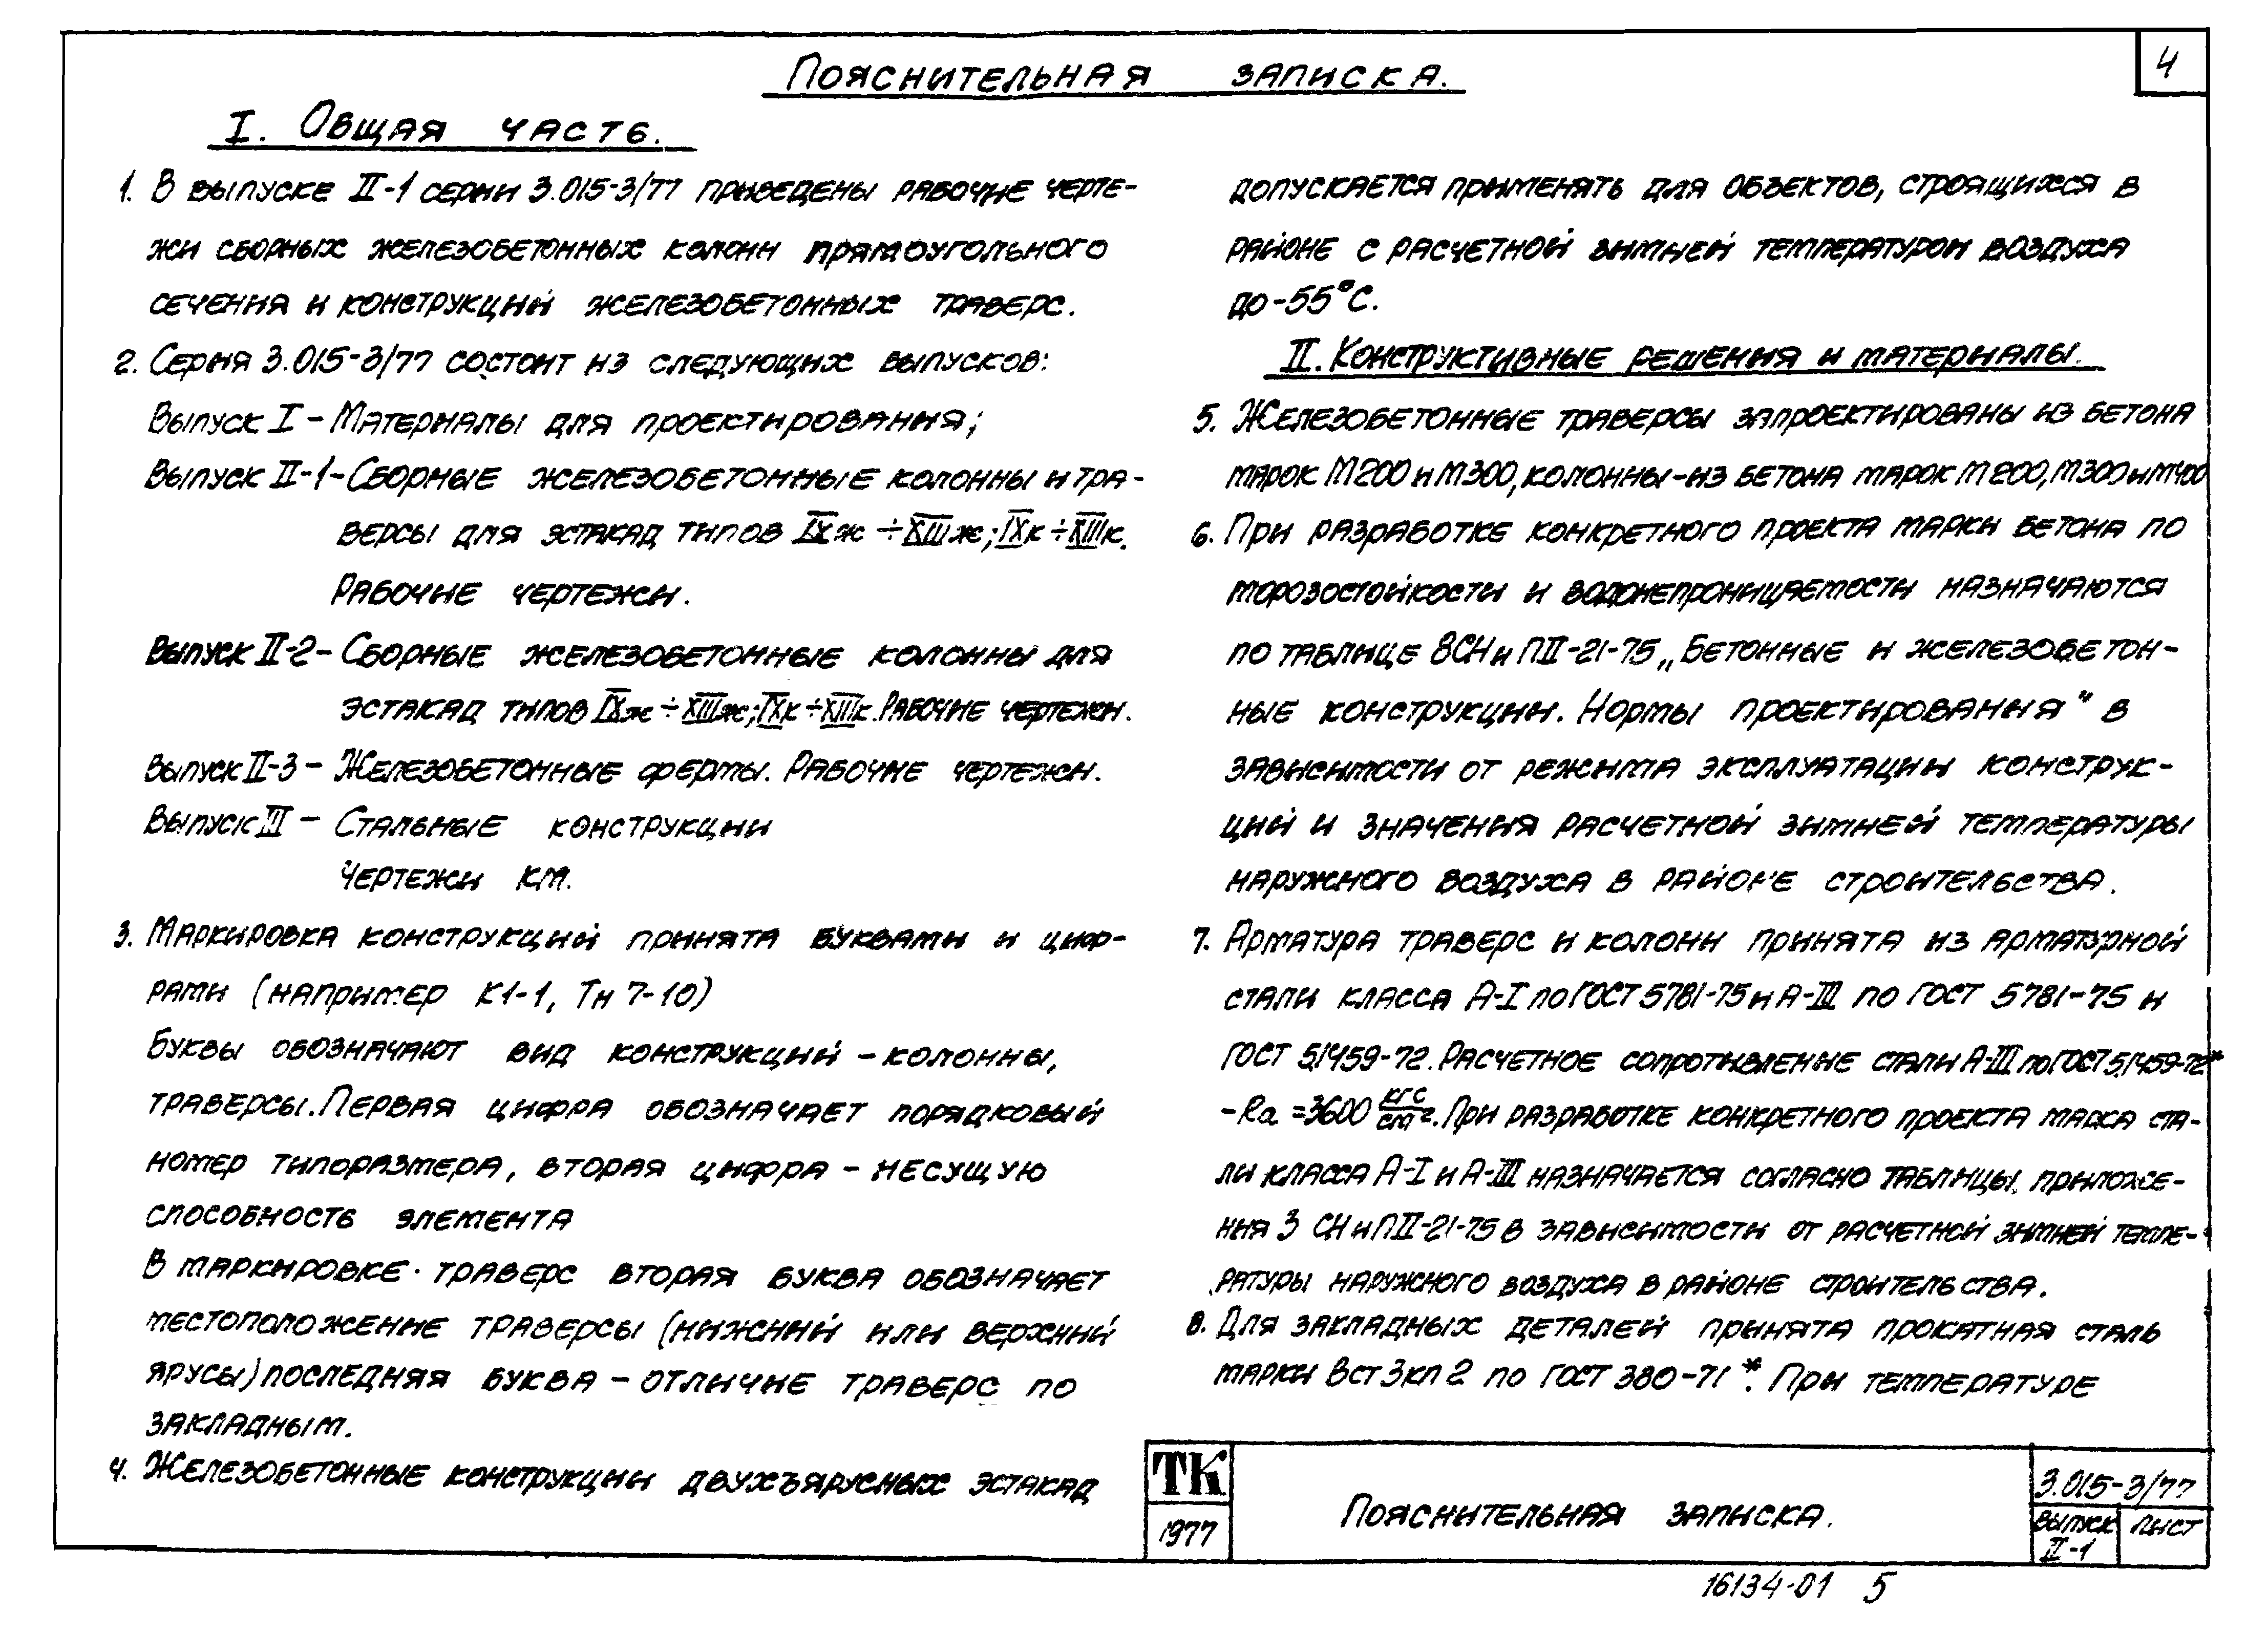 Пояснительная записка.
4
I. Общая часть.
1. В выпуске II-1 серии 3.015-3/77 приведены рабочие черте-
жи сборных железобетонных колонн прямоугольного
сечения и конструкций железобетонных траверс.
2. Серия 3.015-3/77 состоит из следующих выпусков:
Выпуск I – Материалы для проектирования;
Выпуск II-1 – Сборные железобетонные колонны и тра-
версы для эстакад типов IXж ÷ XIIIж; IXк ÷ XIIIк.
Рабочие чертежи.
Выпуск II-2 – Сборные железобетонные колонны для
эстакад типов IXж ÷ XIIIж; IXк ÷ XIIIк. Рабочие чертежи.
Выпуск II-3 – Железобетонные фермы. Рабочие чертежи.
Выпуск III – Стальные конструкции
Чертежи КМ.
3. Маркировка конструкций принята буквами и циф-
рами (например К1-1, Тн 7-10)
Буквы обозначают вид конструкций – колонны,
траверсы. Первая цифра обозначает порядковый
номер типоразмера, вторая цифра – несущую
способность элемента
В маркировке траверс вторая буква обозначает
местоположение траверсы (нижний или верхний
ярусы) последняя буква – отличие траверс по
закладным.
4. Железобетонные конструкции двухъярусных эстакад
допускается применять для объектов, строящихся в
районе с расчетной зимней температурой воздуха
до -55°С.
II. Конструктивные решения и материалы.
5. Железобетонные траверсы запроектированы из бетона
марок М200 и М300, колонны – из бетона марок М200, М300 и М400
6. При разработке конкретного проекта марки бетона по
морозостойкости и водонепроницаемости назначаются
по таблице 8 СНиП II-21-75 „Бетонные и железобетон-
ные конструкции. Нормы проектирования" в
зависимости от режима эксплуатации конструк-
ций и значения расчетной зимней температуры
наружного воздуха в районе строительства.
7. Арматура траверс и колонн принята из арматурной
стали класса А-I по ГОСТ 5781-75 и А-III по ГОСТ 5781-75 и
ГОСТ 5.1459-72. Расчетное сопротивление стали А-III по ГОСТ 5.1459-72*
– Rа = 3600 кгс/см². При разработке конкретного проекта марка ста-
ли класса А-I и А-III назначается согласно таблицы, приложе-
ния 3 СНиП II-21-75 в зависимости от расчетной зимней темпе-
ратуры наружного воздуха в районе строительства.
8. Для закладных деталей принята прокатная сталь
марки Вст3кп2 по ГОСТ 380-71*. При температуре
ТК
1977
Пояснительная записка.
3.015-3/77
Выпуск II-1
лист
16134-01 5